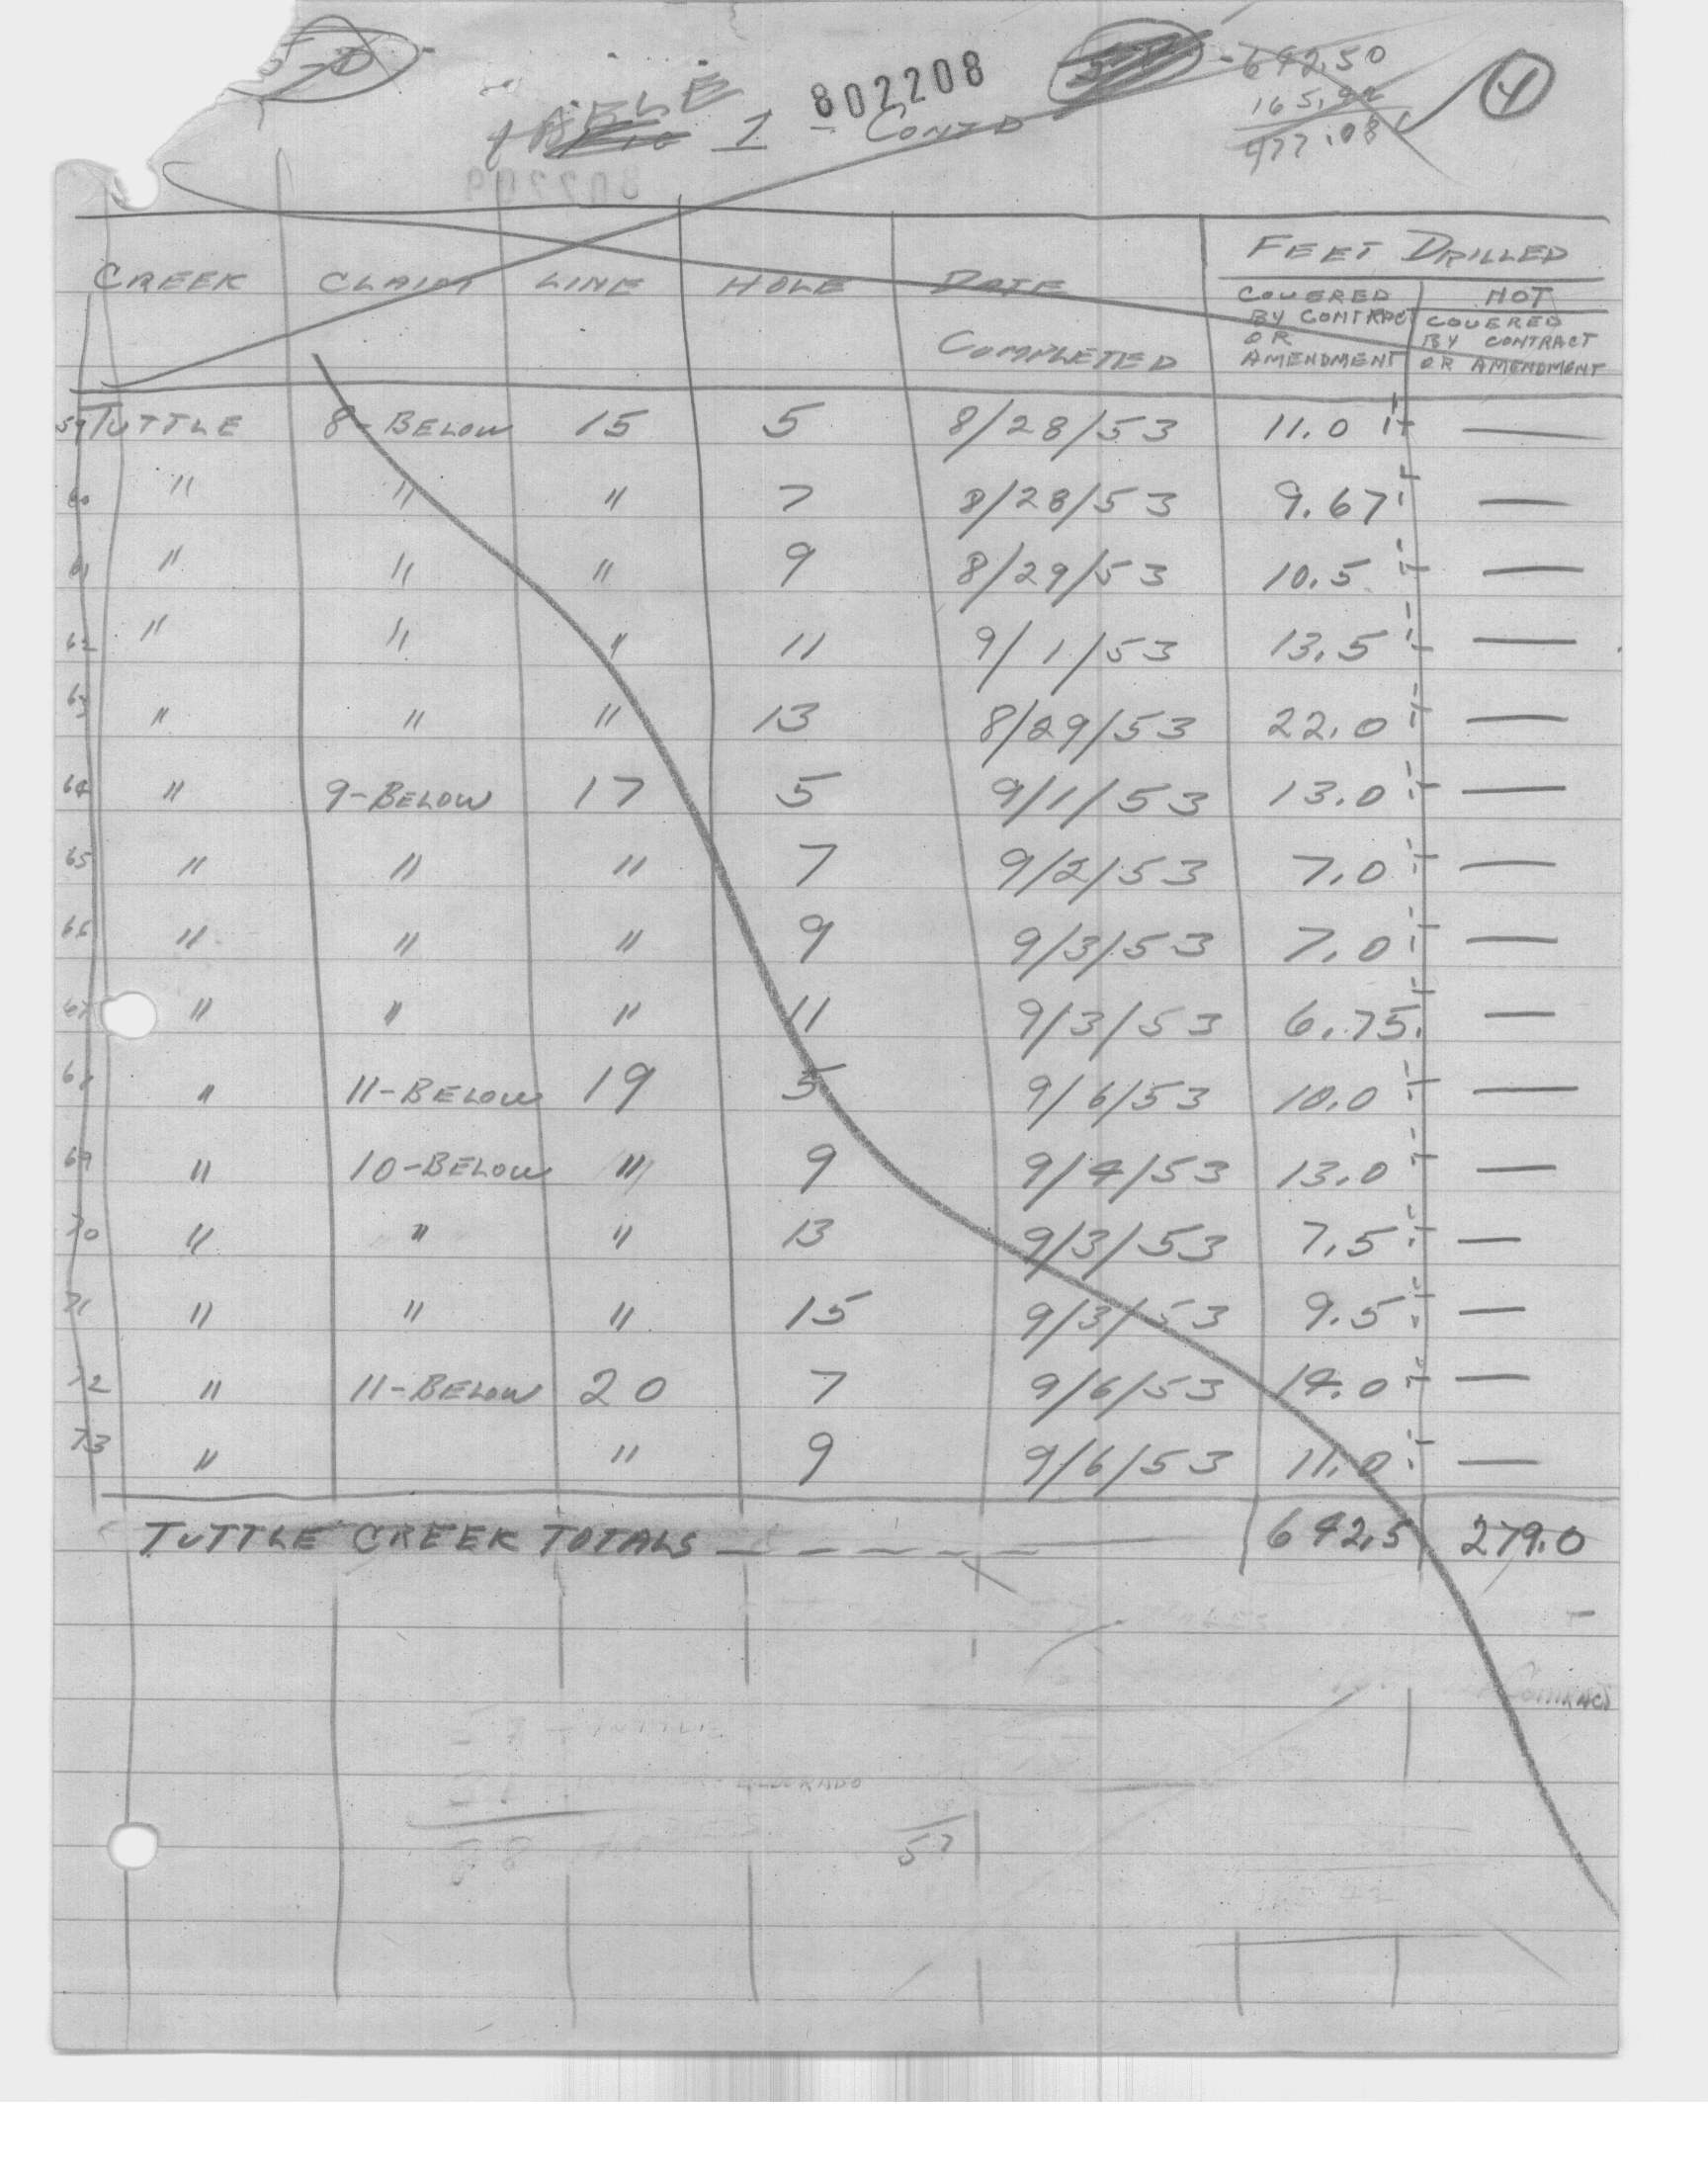 5-D
802208
642.50
4
TABLE 1 - CONT'D
165.42
477.08
802209
FEET DRILLED
CREEK CLAIM LINE HOLE DATE COMPLETED COVERED BY CONTRACT OR AMENDMENT NOT COVERED BY CONTRACT OR AMENDMENT
59 TUTTLE 8-BELOW 15 5 8/28/53 11.0 —
60 " " " 7 8/28/53 9.67 —
61 " " " 9 8/29/53 10.5 —
62 " " " 11 9/1/53 13.5 —
63 " " " 13 8/29/53 22.0 —
64 " 9-BELOW 17 5 9/1/53 13.0 —
65 " " " 7 9/2/53 7.0 —
66 " " " 9 9/3/53 7.0 —
67 " " " 11 9/3/53 6.75 —
68 " 11-BELOW 19 5 9/6/53 10.0 —
69 " 10-BELOW " 9 9/4/53 13.0 —
70 " " " 13 9/3/53 7.5 —
71 " " " 15 9/3/53 9.5 —
72 " 11-BELOW 20 7 9/6/53 14.0 —
73 " " 9 9/6/53 11.0 —
TUTTLE CREEK TOTALS — — — — — — 642.5 279.0
CONTRACT
ELDORADO
57